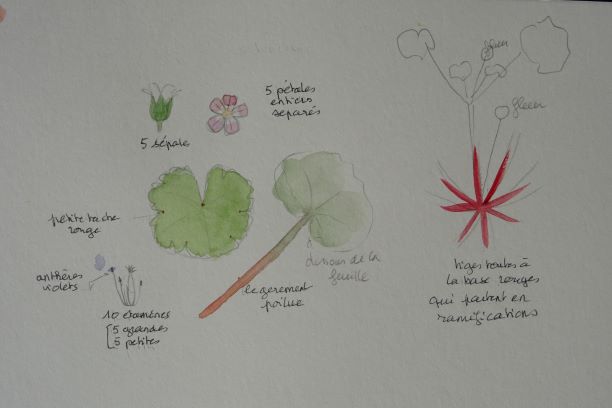 5 pétales
entiers
séparés
5 sépale
petite tache
rouge
anthères
violets
10 étamines
5 grandes
5 petites
légerement
poilue
dessous de la
feuille
fleur
fleur
tiges toutes à
la base rouges
qui partent en
ramifications